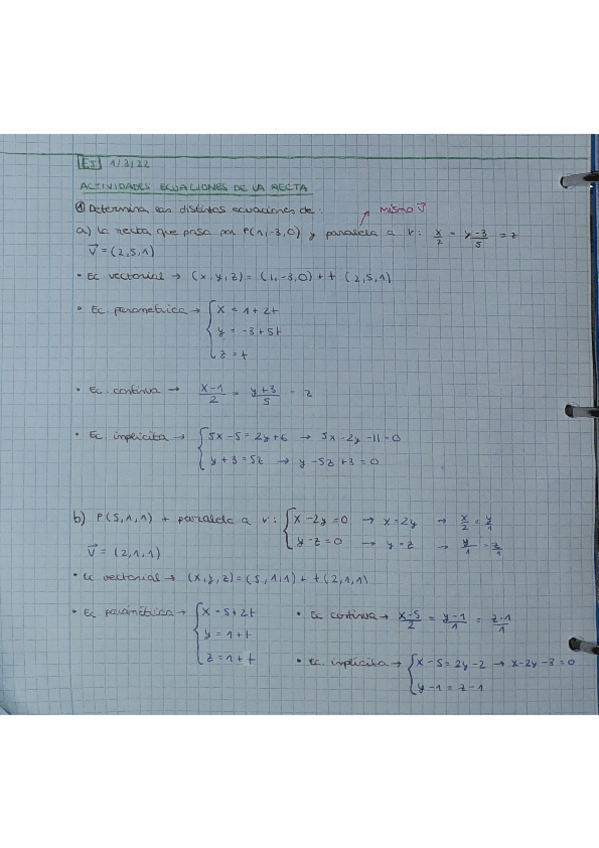 EJ 1/3/22
ACTIVIDADES ECUACIONES DE LA RECTA
① Determina las distintas ecuaciones de:
mismo v⃗
a) La recta que pasa por P(1,-3,0) y paralela a r: x/2 = y-3/5 = z
v⃗ = (2,5,1)
• Ec vectorial → (x,y,z) = (1,-3,0) + t (2,5,1)
• Ec parametrica → { x = 1+2t
y = -3+5t
z = t
• Ec continua → x-1/2 = y+3/5 = z
• Ec implícita → { 5x-5 = 2y+6 → 5x-2y-11=0
y+3 = 5z → y-5z+3=0
b) P(5,1,1) + paralela a r: { x-2y=0 → x=2y → x/2 = y/1
y-z=0 → y=z → y/1 = z/1
v⃗ = (2,1,1)
• Ec vectorial → (x,y,z) = (5,1,1) + t(2,1,1)
• Ec paramétrica → { x = 5+2t
y = 1+t
z = 1+t
• Ec continua → x-5/2 = y-1/1 = z-1/1
• Ec implícita → { x-5 = 2y-2 → x-2y-3=0
y-1 = z-1